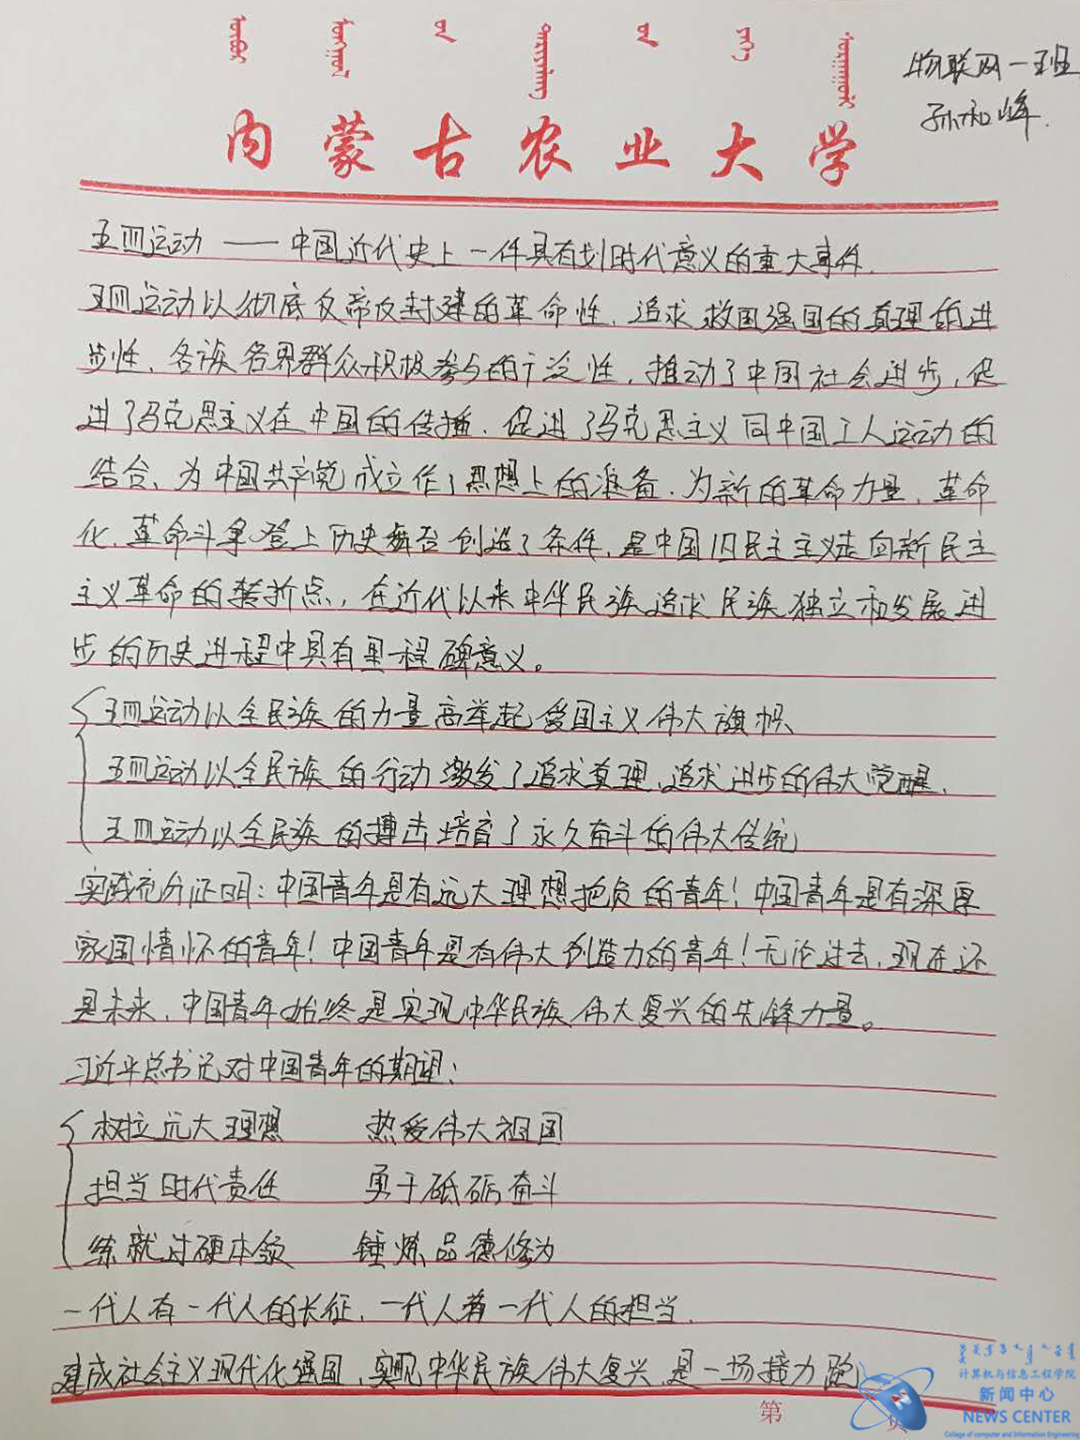 内蒙古农业大学
物联网一班
孙和峰.
五四运动——中国近代史上一件具有划时代意义的重大事件.
五四运动以彻底反帝反封建的革命性、追求救国强国的真理的进
步性、各族各界群众积极参与的广泛性,推动了中国社会进步,促
进了马克思主义在中国的传播.促进了马克思主义同中国工人运动的
结合、为中国共产党成立作了思想上的准备.为新的革命力量、革命
化、革命斗争登上历史舞台创造了条件,是中国旧民主主义走向新民主
主义革命的转折点,在近代以来中华民族追求民族独立和发展进
步的历史进程中具有里程碑意义。
五四运动以全民族的力量高举起爱国主义伟大旗帜、
五四运动以全民族的行动激发了追求真理、追求进步的伟大觉醒、
五四运动以全民族的搏击培育了永久奋斗的伟大传统
实践充分证明:中国青年是有远大理想抱负的青年!中国青年是有深厚
家国情怀的青年!中国青年是有伟大创造力的青年!无论过去、现在还
是未来,中国青年始终是实现中华民族伟大复兴的先锋力量。
习近平总书记对中国青年的期望:
树立远大理想 热爱伟大祖国
担当时代责任 勇于砥砺奋斗
练就过硬本领 锤炼品德修为
一代人有一代人的长征,一代人有一代人的担当.
建成社会主义现代化强国,实现中华民族伟大复兴,是一场接力跑
第 页
计算机与信息工程学院
新闻中心
NEWS CENTER
College of computer and Information Engineering